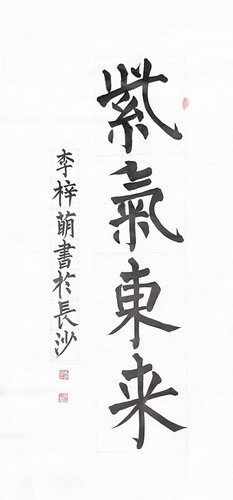 紫氣東来
李梓萌書於長沙